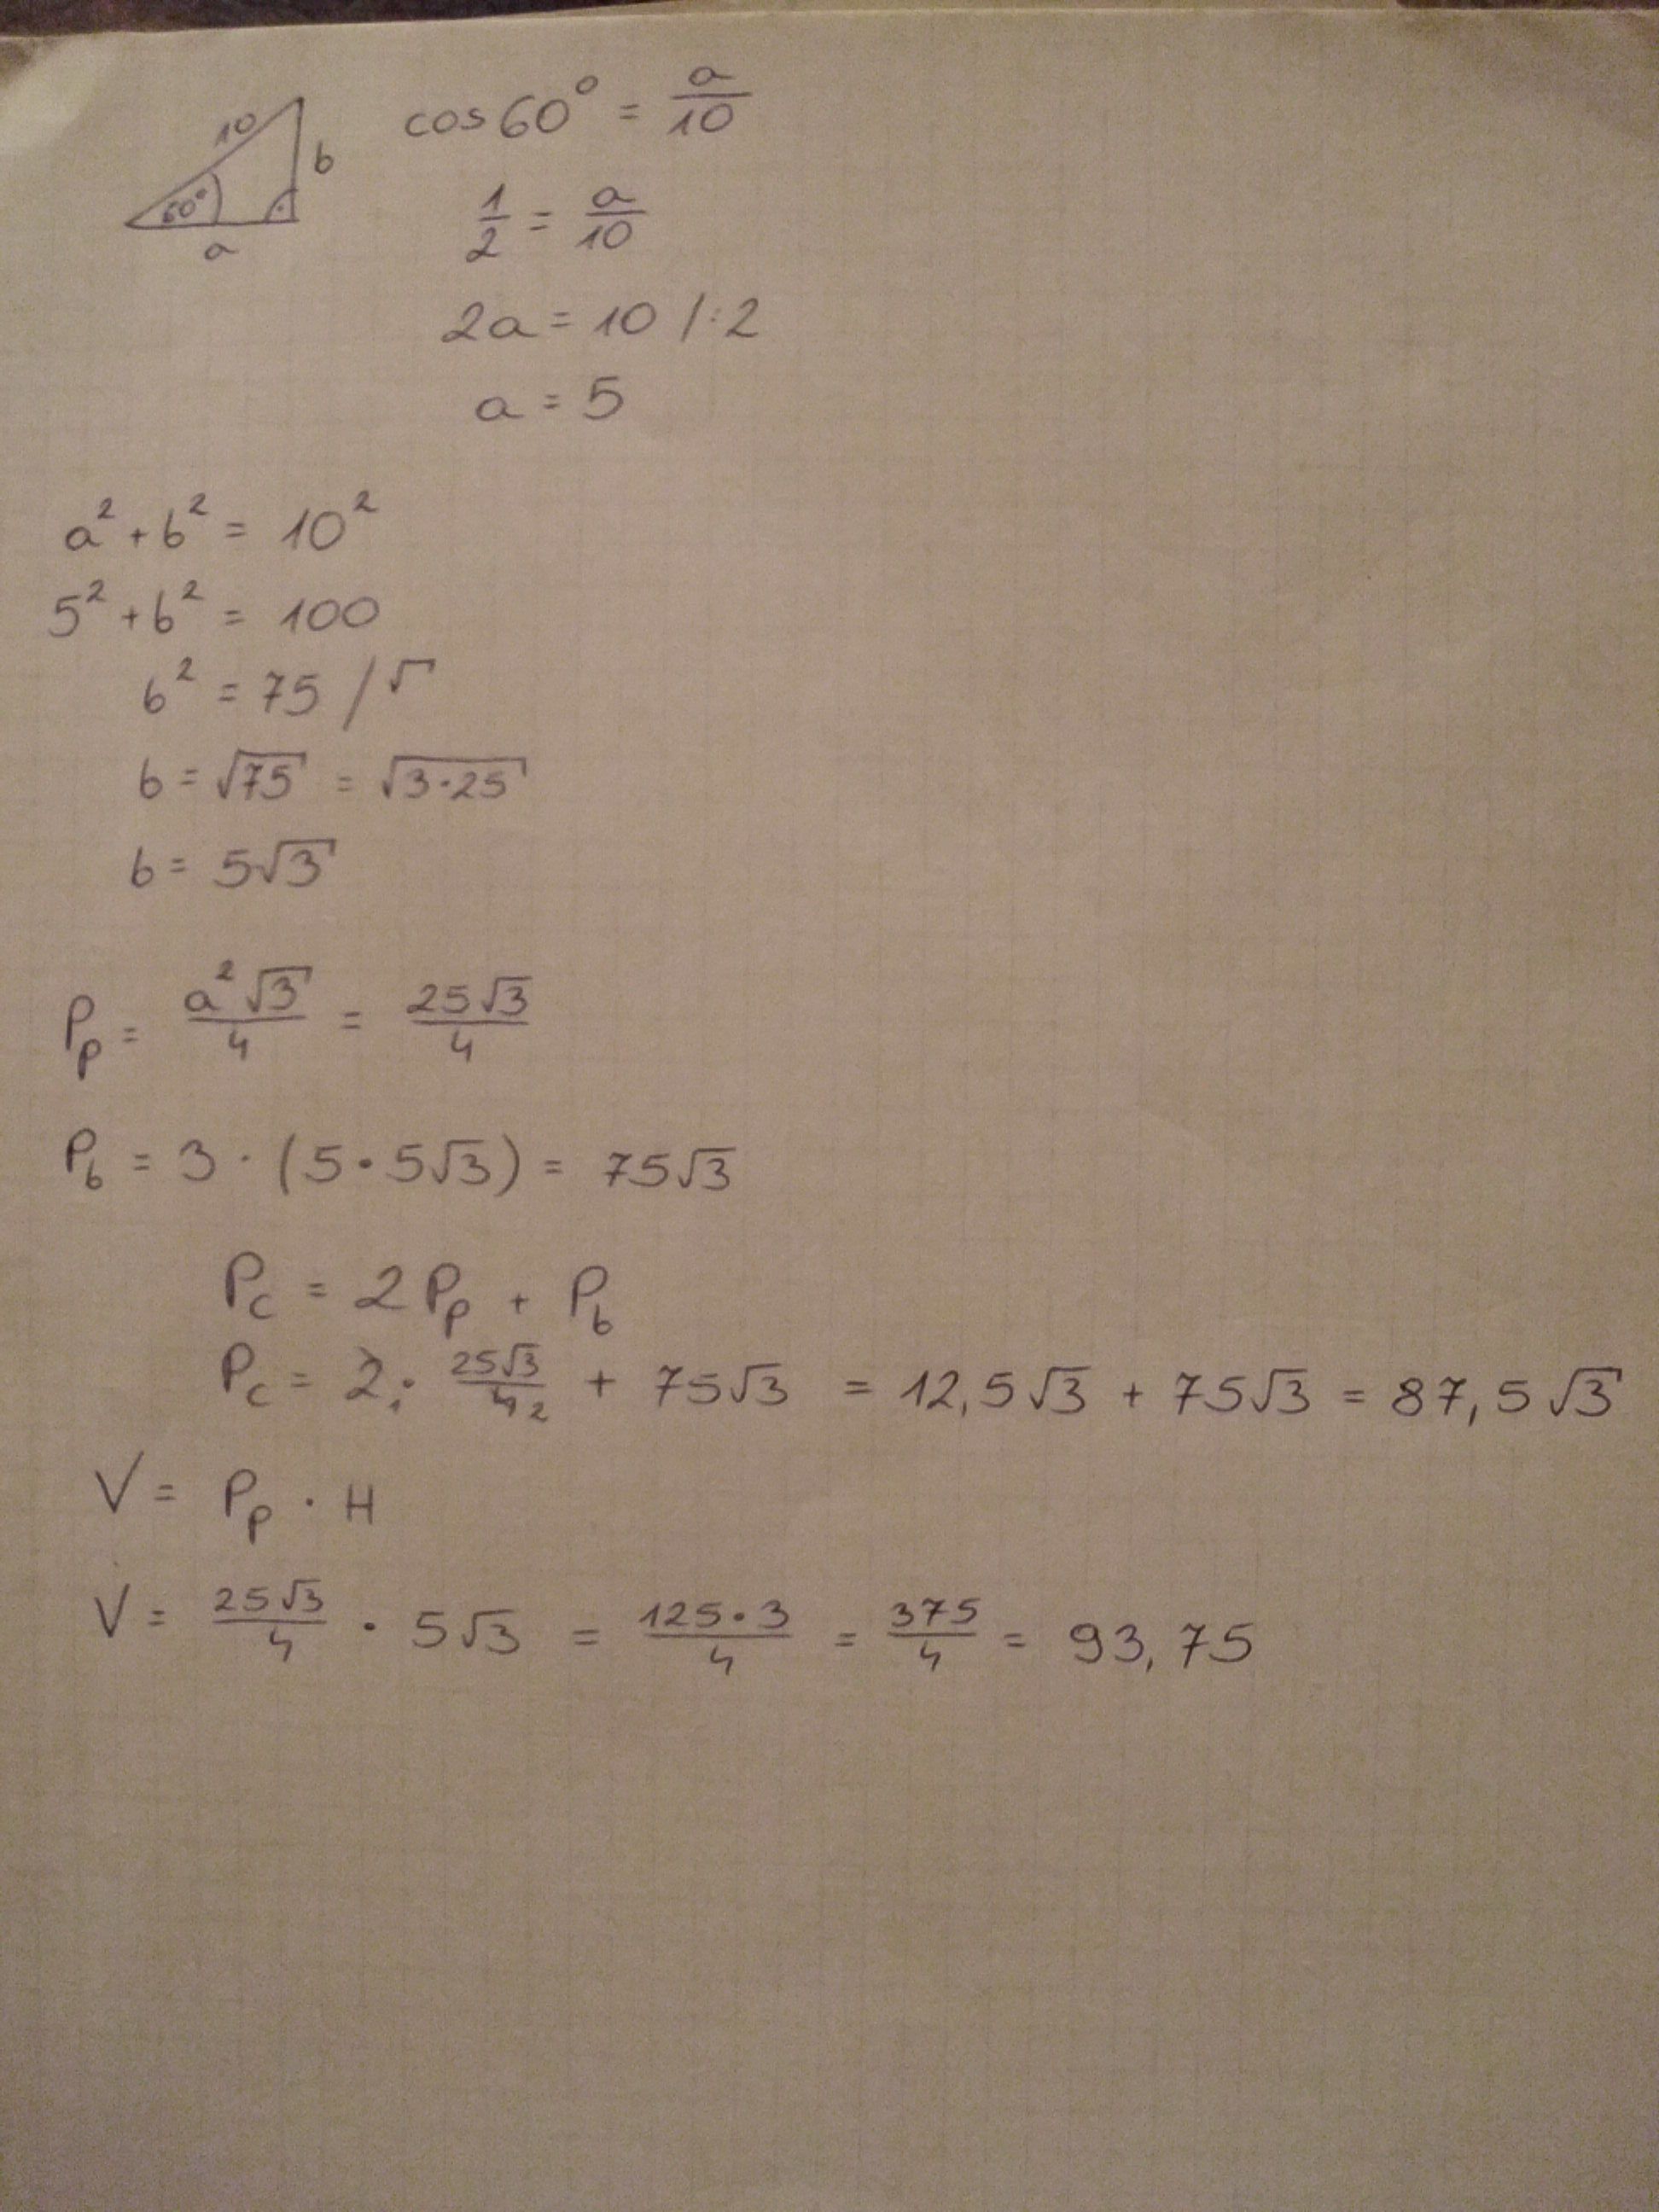 10
b
60°
a
cos 60° = a/10
1/2 = a/10
2a = 10 /:2
a = 5
a² + b² = 10²
5² + b² = 100
b² = 75 /√
b = √75 = √3·25
b = 5√3
Pp = a²√3/4 = 25√3/4
Pb = 3 · (5 · 5√3) = 75√3
Pc = 2Pp + Pb
Pc = 2₁ · 25√3/4₂ + 75√3 = 12,5√3 + 75√3 = 87,5√3
V = Pp · H
V = 25√3/4 · 5√3 = 125·3/4 = 375/4 = 93,75